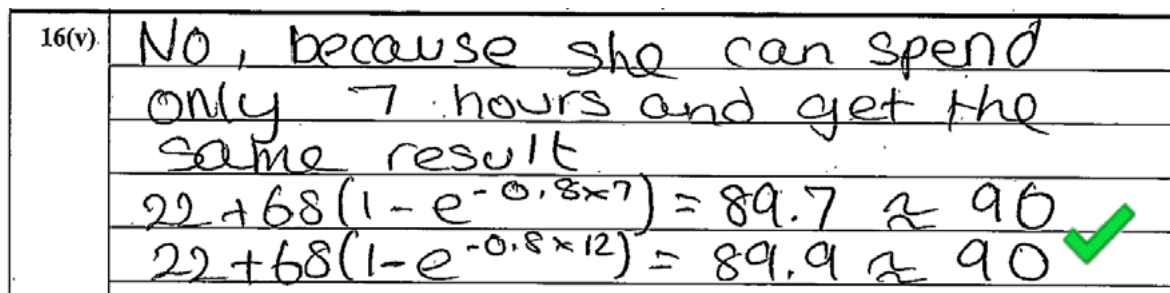 16(v) No, because she can spend
only 7 hours and get the
same result
22+68(1-e^-0.8×7) = 89.7 ≈ 90
22+68(1-e^-0.8×12) = 89.9 ≈ 90